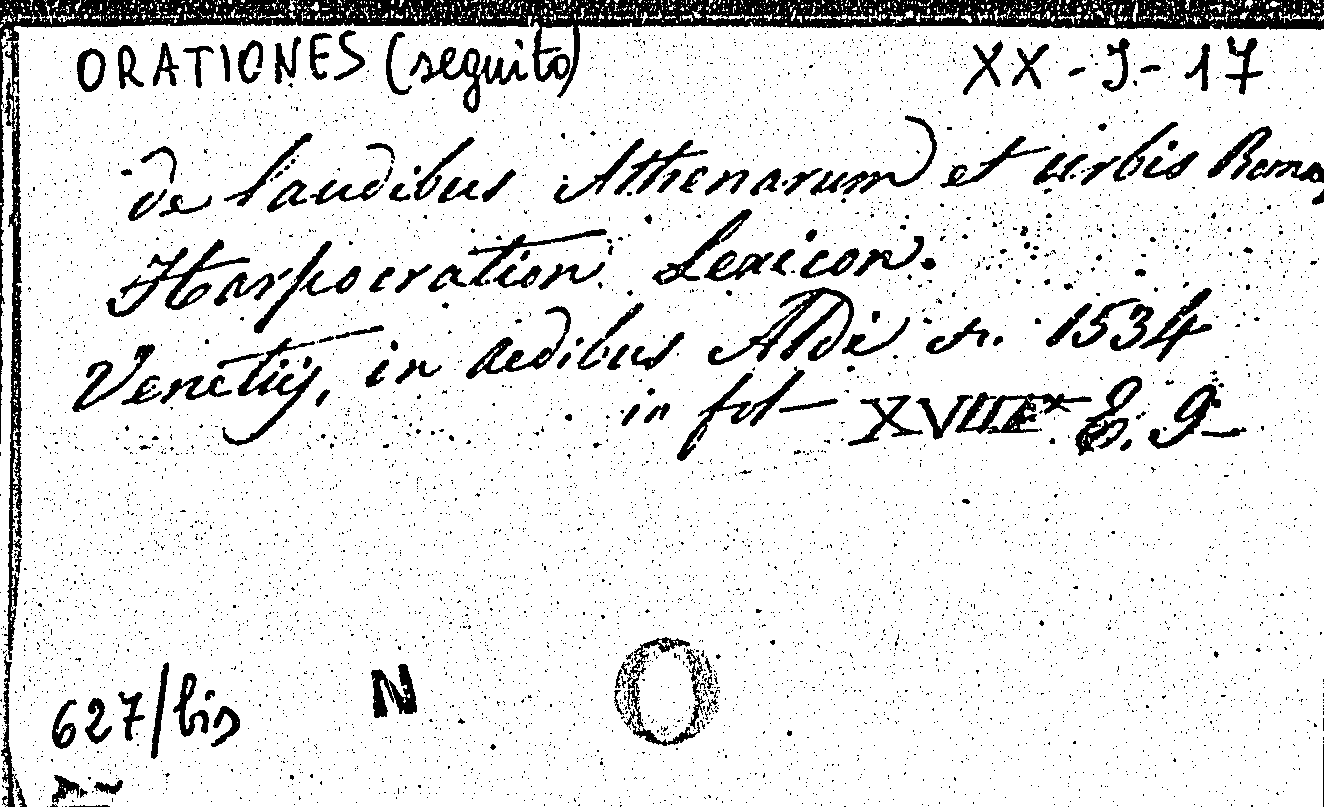 ORATIONES (seguito) XX-J-17
de laudibus Athenarum et urbis Romae
Harpocration Lexicon.
Venetiis, in aedibus Aldi
1534
in fol — XVIII E. 9
627/bis N O